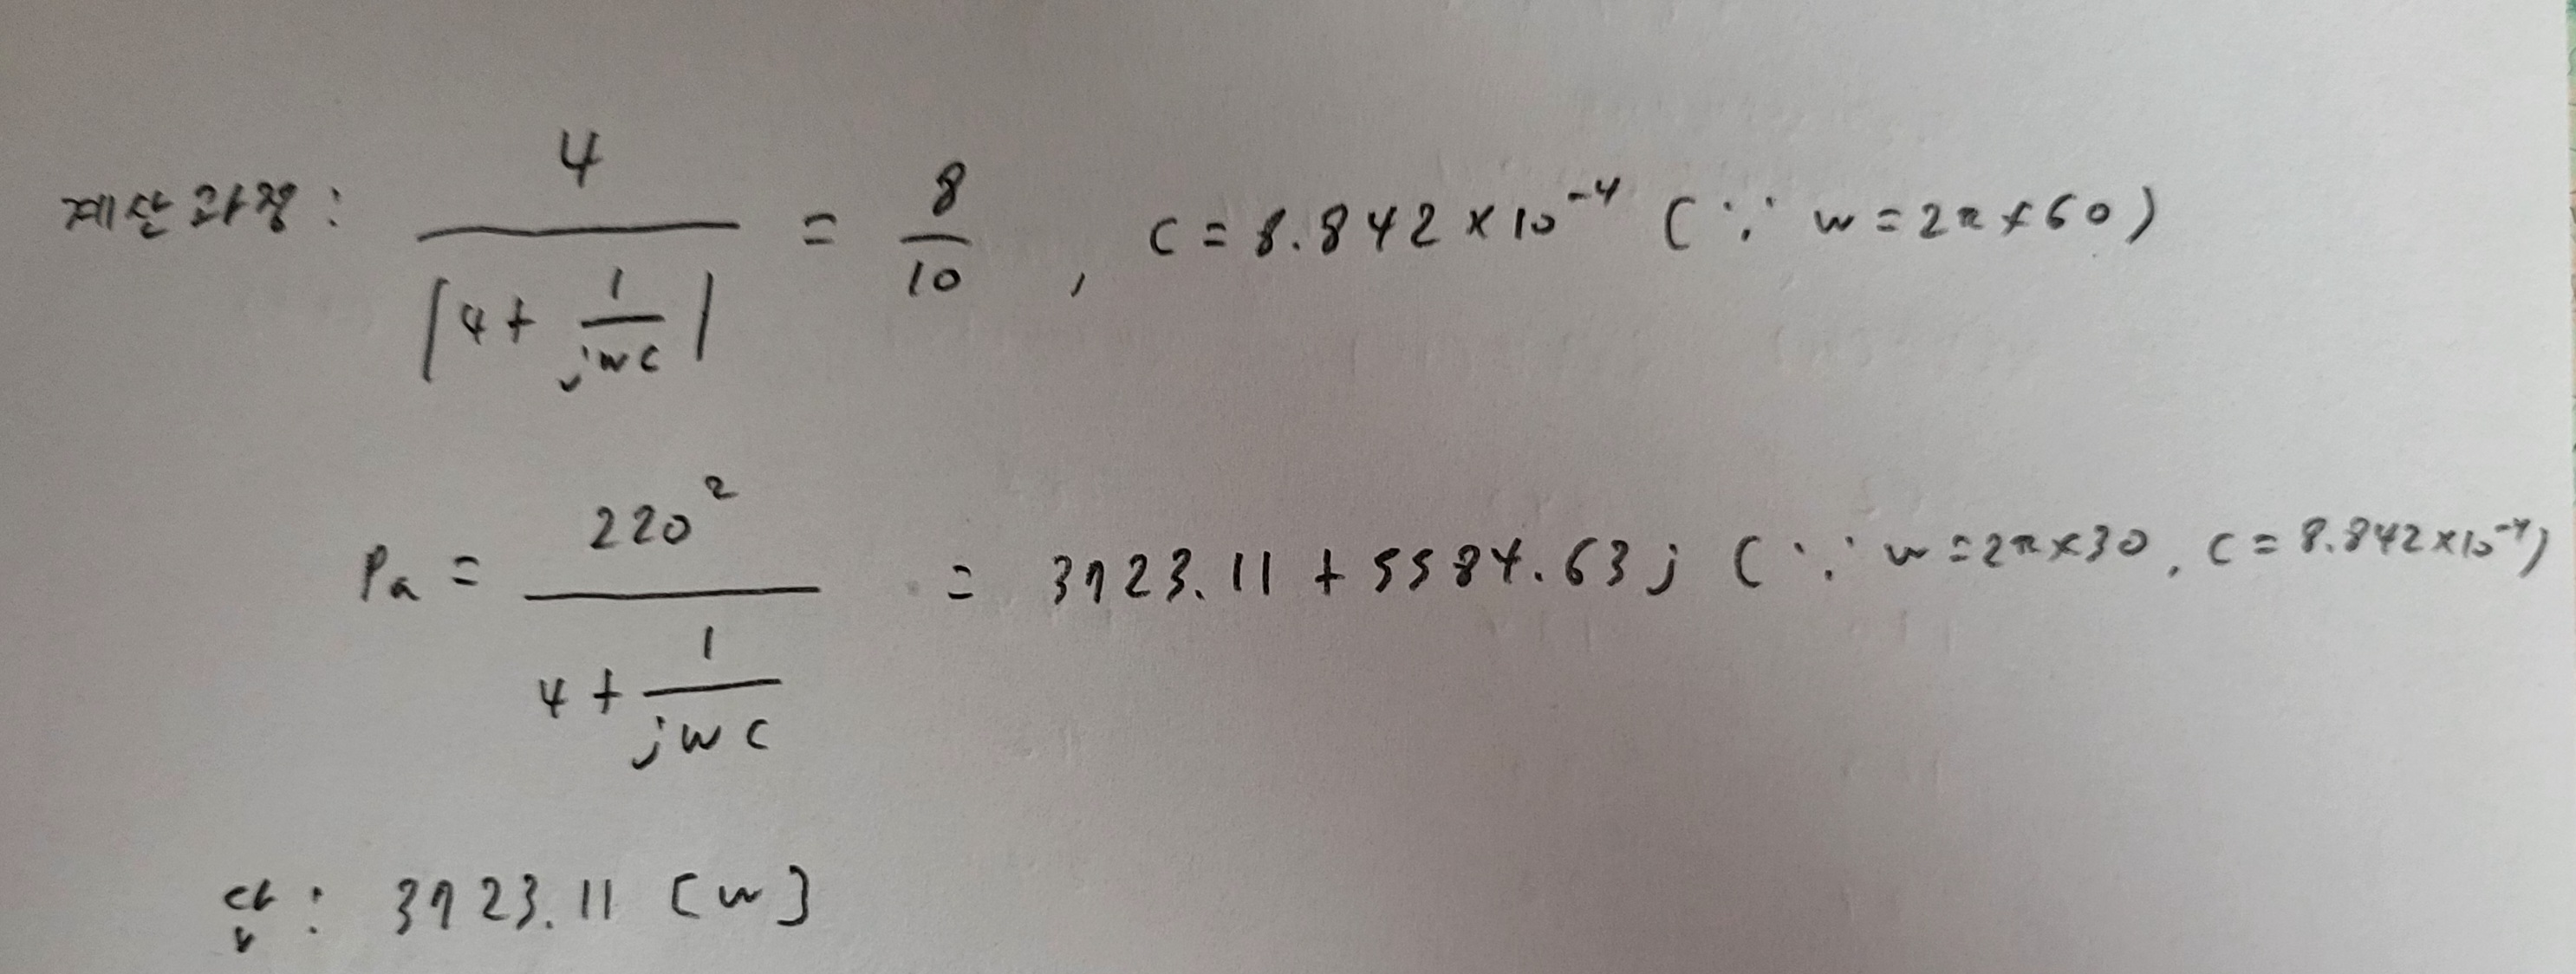 계산과정 : 4 / |4 + 1/jwc| = 8/10 , c = 8.842 × 10⁻⁴ (∵ w = 2π × 60)
Pa = 220² / (4 + 1/jwc) = 3723.11 + 5584.63j (∵ w = 2π×30, c = 8.842×10⁻⁴)
답 : 3723.11 [w]